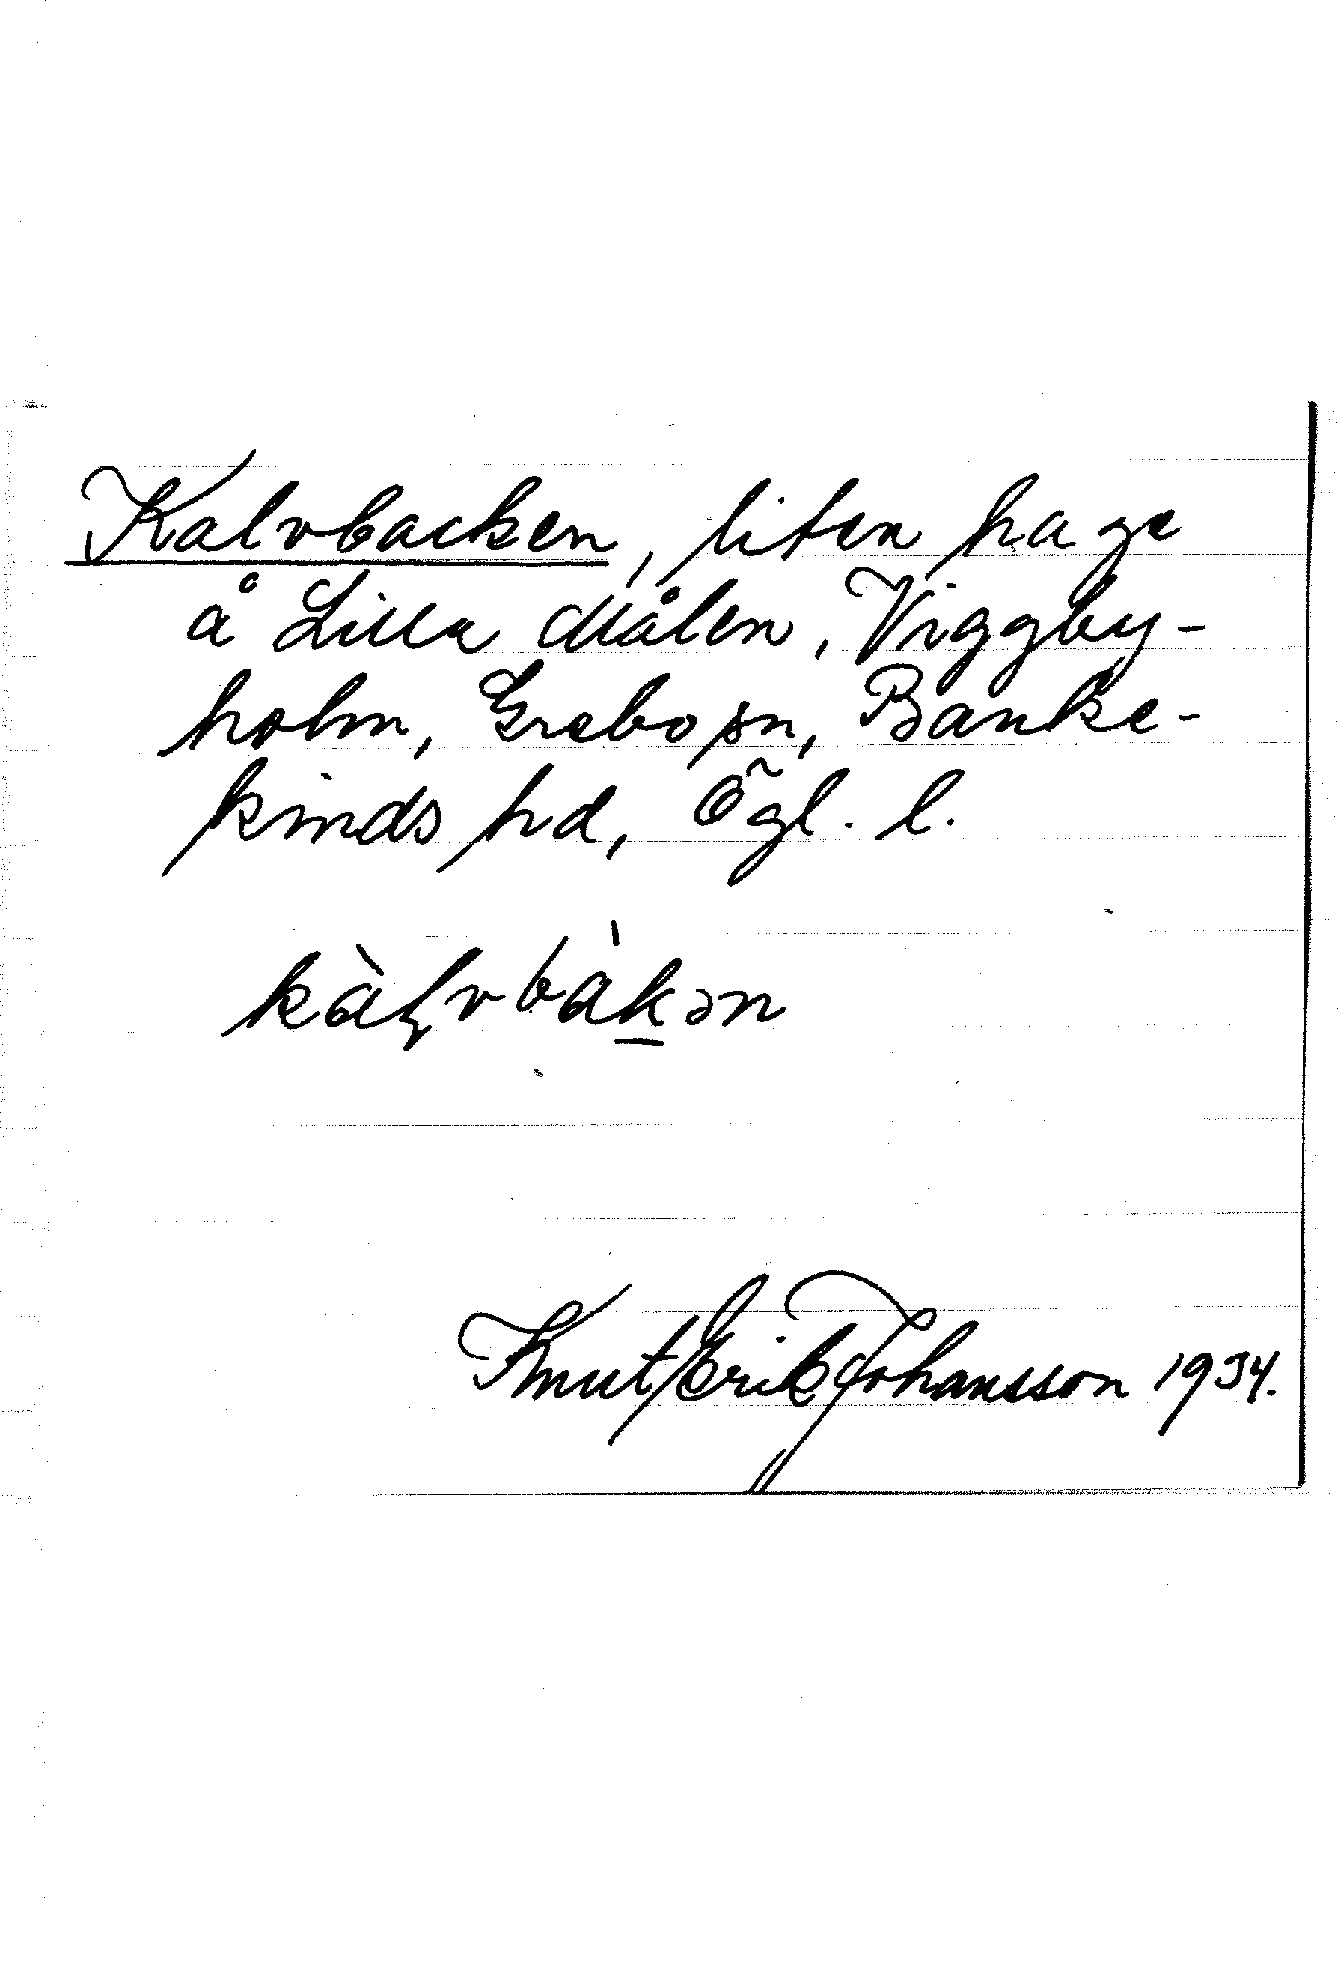 Kalvbacken, liten hage
å Lilla Målen, Viggby-
holm, Grebo sn, Banke-
kinds hd, Ögl. l.
kàɭvbàkən
Knut Erik Johansson 1934.